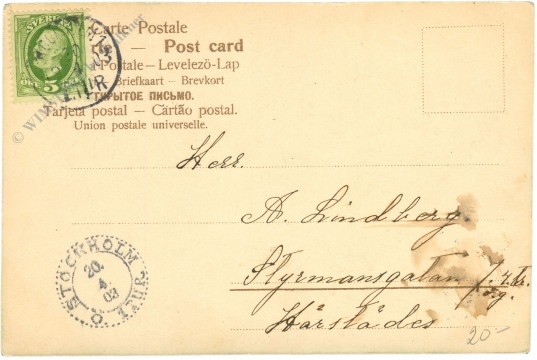 Carte Postale
Post card
Postale – Levelezö-Lap
Briefkaart – Brevkort
ОТКРЫТОЕ ПИСЬМО.
Tarjeta postal – Cartão postal.
Union postale universelle.
SVERIGE
5
Herr.
A. Lindberg.
Styrmansgatan
Härstädes
STOCKHOLM
20.
4
03
20-